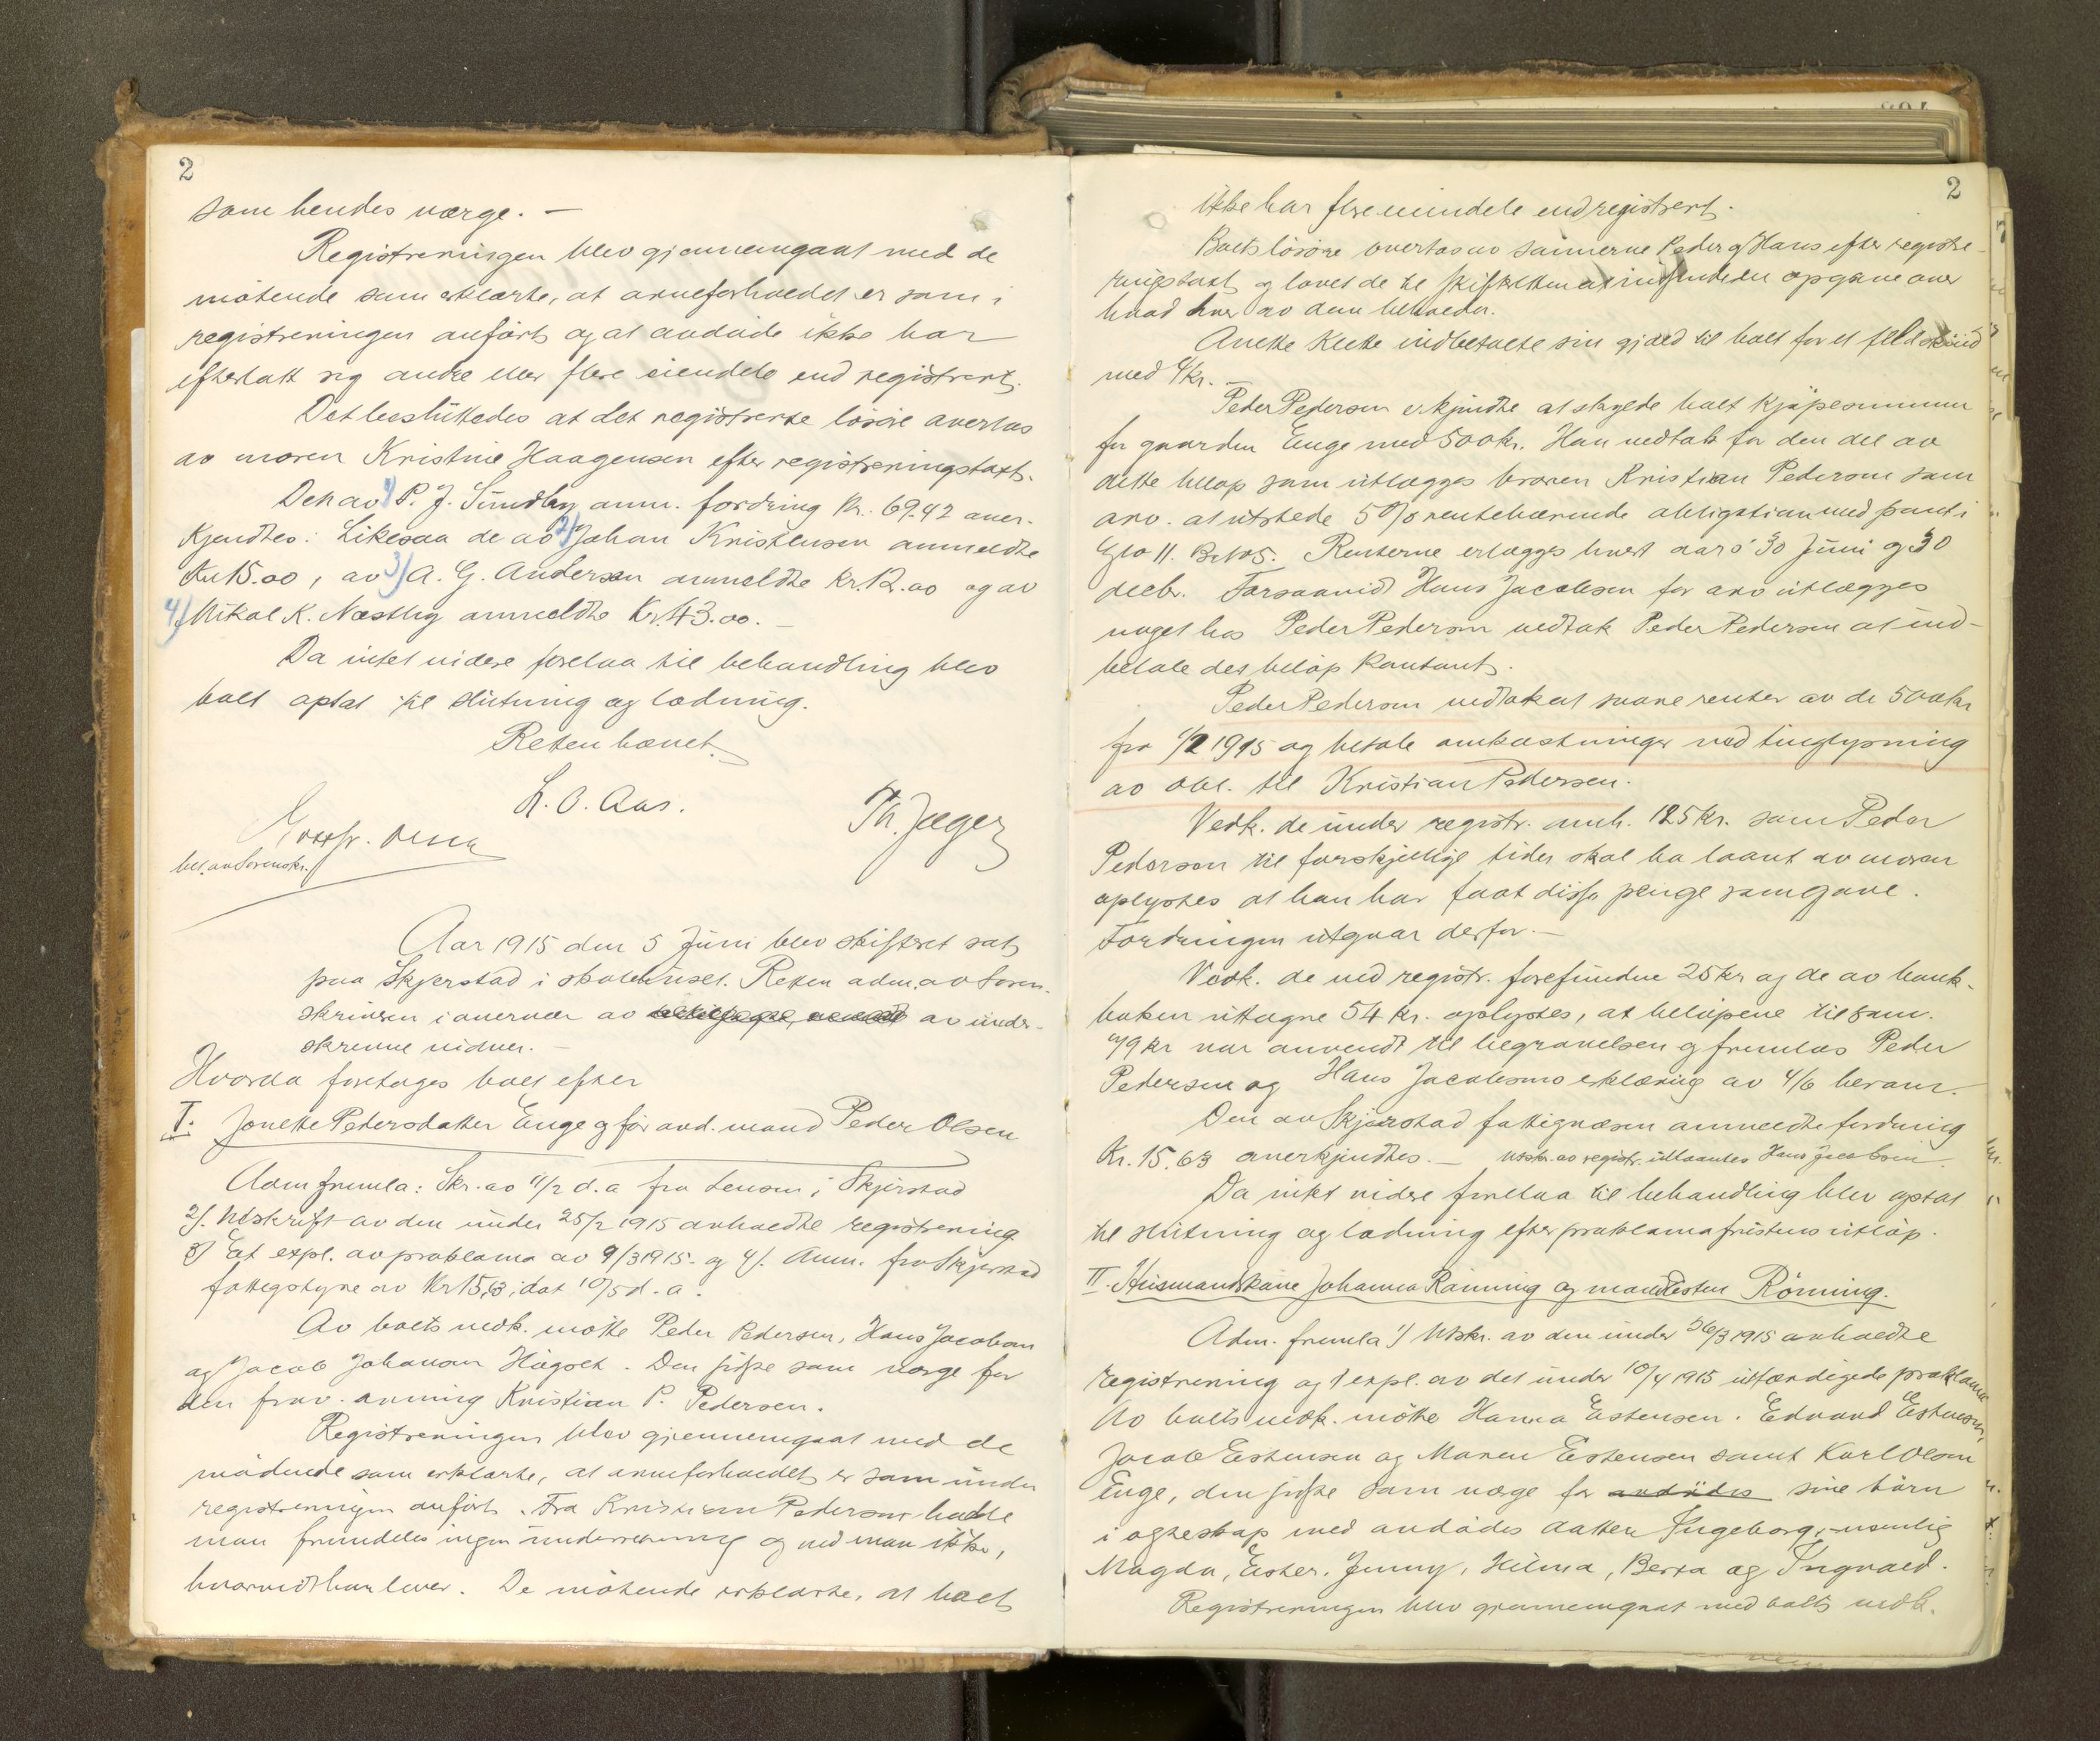 2
som hendes værge. —
Registreringen blev gjennemgaat med de
møtende som erklærte, at arveforholdet er som i
registreringen anført og at avdøde ikke har
efterlatt sig andre eller flere eiendele end registrert.
Det besluttedes at det registrerte løsøre overtas
av moren Kristine Haagensen efter registreringstakst.
Den av 1) P. J. Sundby anm. fordring kr. 69.42 aner-
kjendtes. Likesaa de av 2) Johan Kristensen anmeldte
Kr 15.00, av 3) A. G. Andersen anmeldte kr. 12.00 og av
4) Nikal K. Næstby anmeldte Kr. 43.00. —
Da intet videre forelaa til behandling blev
boet optat til slutning og lodning.
Retten hævet.
L. O. Aas.
Th. Jæger
bet. av Sorenskr.
Aar 1915 den 5 Juni blev skifteret sat
paa Skjerstad i skolehuset. Retten adm. av Soren-
skriveren i overvær av av under-
skrevne vidner. —
Hvorda foretages boet efter
I. Jonette Pedersdatter Enge og før avd. mand Peder Olsen
Adm fremla: Skr. av 11/2 d.a fra Lensm. i Skjerstad
2). Utskrift av den under 25/2 1915 avholdte registrering
3) Et expl. av proklama av 9/3 1915 og 4). Anm. fra Skjerstad
fattigstyre av Kr 15,63, dat 10/5 d. a.
Av boets vedk. møtte Peder Pedersen, Hans Jacobsen
og Jacob Johansen Høgset. Den sidste som værge for
den frav. arving Kristian P. Pedersen.
Registreringen blev gjennemgaat med de
mødende som erklærte, at arveforholdet er som under
registreringen anført. Fra Kristian Pedersen hadde
man fremdeles ingen underretning og ved man ikke,
hvorvidt han lever. De møtende erklærte, at boet
2
ikke har flere eiendele end registrert.
Boets løsøre overtas av sønnerne Peder og Hans efter registre-
ringstakst og lovet de til skifteretten at indsende en opgave over
hvad hver av dem beholder.
Anette Keete indbetalte sin gjæld til boet for et feldskind
med 4 kr. —
Peder Pedersen erkjendte at skylde boet kjøpesummen
for gaarden Enge med 500 kr. Han vedtok for den del av
dette beløp som utlægges broren Kristian Pedersen som
arv. at utstede 5 % rentebærende obligation med pant i
Gno 11. Brno 5. Renterne erlægges hvert aars 30 Juni og 30
decbr. Forsaavidt Hans Jacobsen for arv utlægges
noget hos Peder Pedersen vedtok Peder Pedersen at ind-
betale det beløp kontant.
Peder Pedersen vedtok at svare renter av de 500 kr
fra 1/2 1915 og betale omkostninger ved tinglysning
av obl. til Kristian Pedersen.
Vedk. de under registr. anh. 125 kr. som Peder
Pedersen til forskjellige tider skal ha laant av moren
oplystes at han har faat disse penge som gave.
Fordringen utgaar derfor. —
Vedk. de ved registr. forefundne 25 kr og de av bank-
boken uttagne 54 kr. oplystes, at beløpene tilsam.
79 kr var anvendt til begravelsen og fremlas Peder
Pedersen og Hans Jacobsens erklæring av 4/6 herom.
Den av Skjerstad fattigvæsen anmeldte fordring
Kr. 15.63 anerkjendtes. — Utskr. av registr. utlaantes Hans Jacobsen.
Da intet videre forelaa til behandling blev optat
til slutning og lodning efter proklamafristens utløp.
II. Husmandskone Johanna Rønning og mand Esten Rønning.
Adm. fremla 1) Utskr. av den under 26/3 1915 avholdte
registrering og 1 expl. av det under 10/4 1915 utfærdigede proklama
Av boets vedk. møtte Hanna Estensen. Edvard Estensen,
Jacob Estensen og Maren Estensen samt Karl Olsen
Enge, den sidste som værge for avdødes sine børn
i egteskap med avdødes datter Ingeborg, nemlig
Magda, Ester, Jenny, Hilma, Berta og Ingvald.
Registreringen blev gjennemgaat med boets vedk.